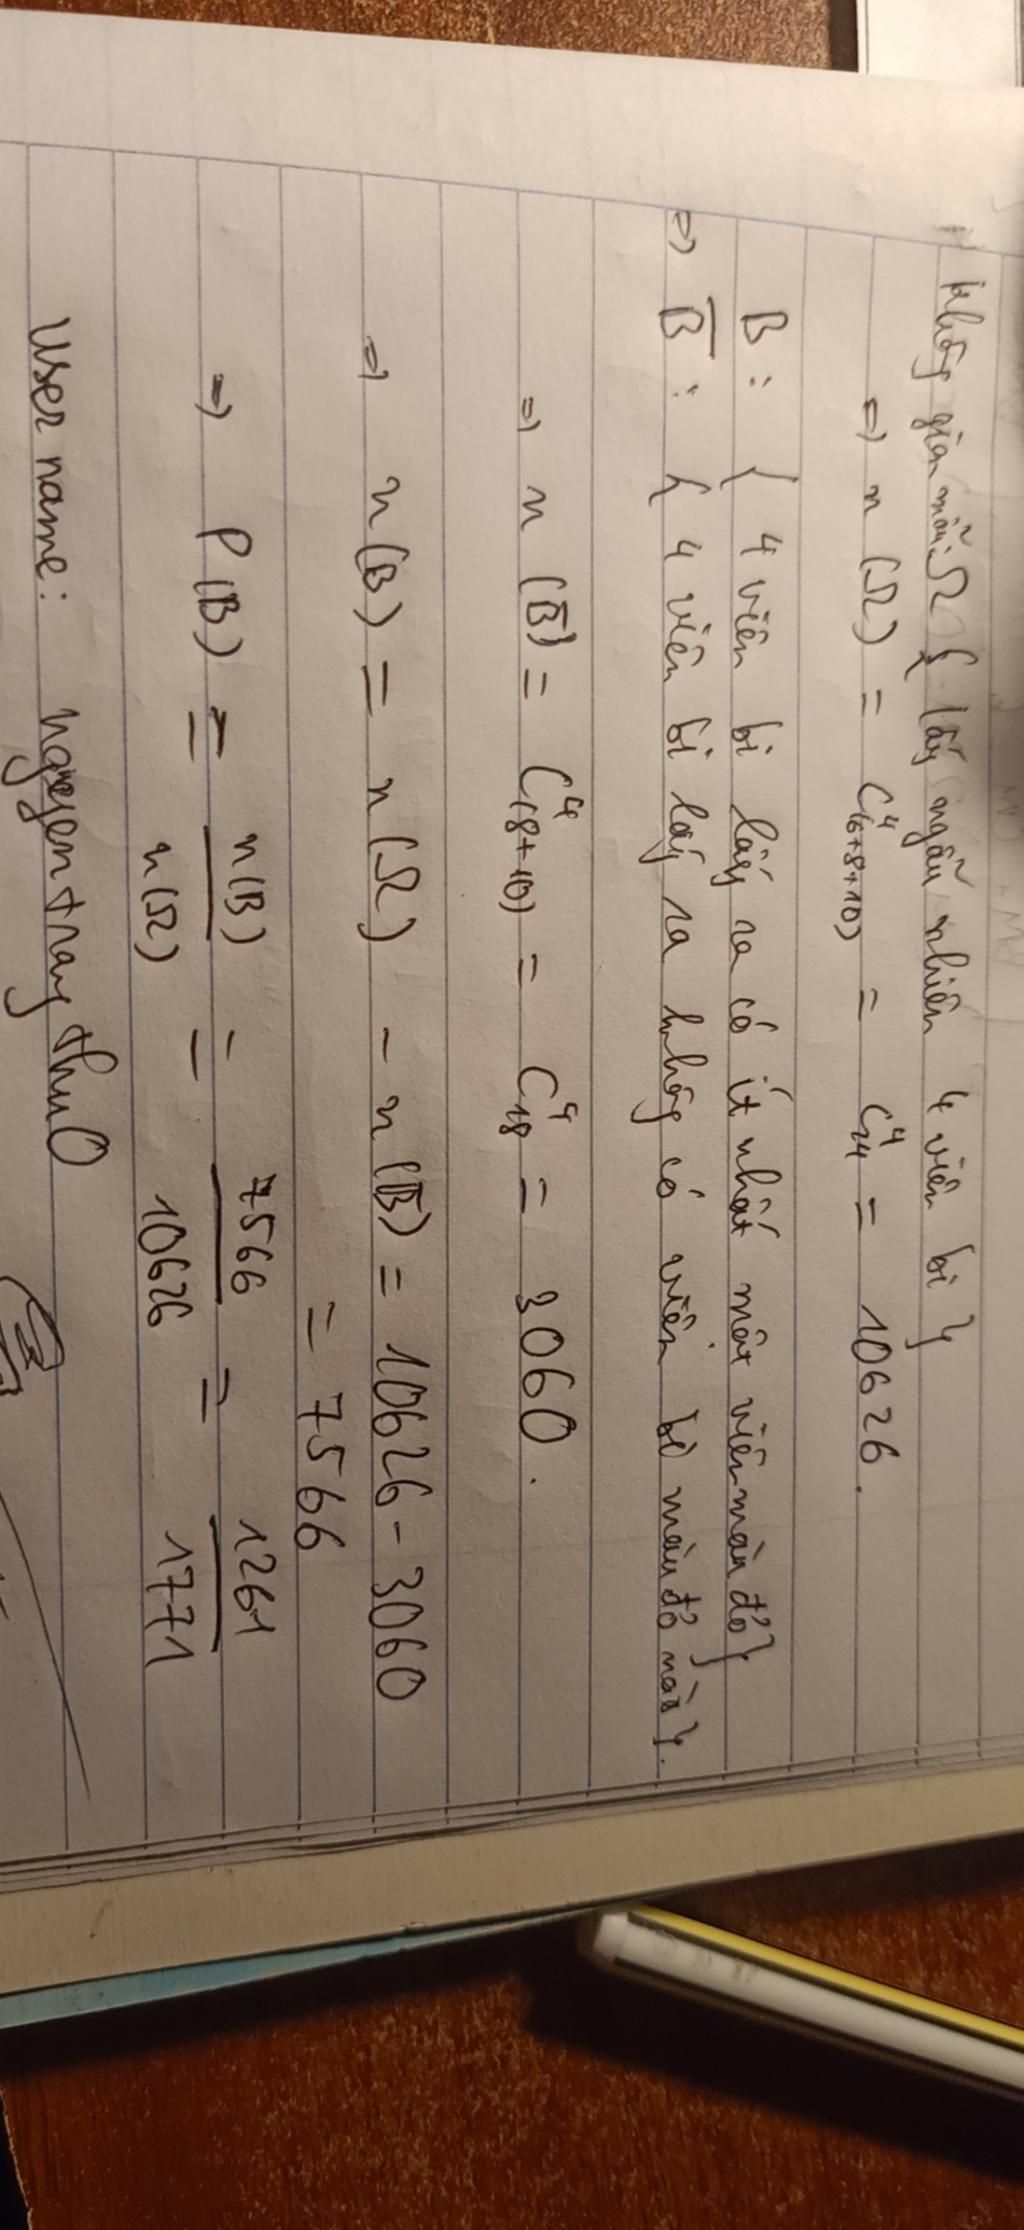 Không gian mẫu: Ω { lấy ngẫu nhiên 4 viên bi }
=> n (Ω) = C⁴₍₆₊₈₊₁₀₎ = C⁴₂₄ = 10626.
B : { 4 viên bi lấy ra có ít nhất một viên màu đỏ}
=> B̅ : { 4 viên bi lấy ra không có viên bi màu đỏ nào}.
=> n (B̅) = C⁴₍₈₊₁₀₎ = C⁴₁₈ = 3060.
=> n (B) = n (Ω) - n (B̅) = 10626 - 3060
= 7566
=> P (B) = n(B)/n(Ω) = 7566/10626 = 1261/1771
User name: nguyentrangthu0